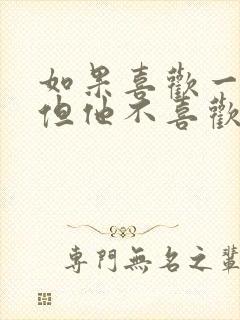 如果喜歡一
但他不喜歡
專門無名之輩